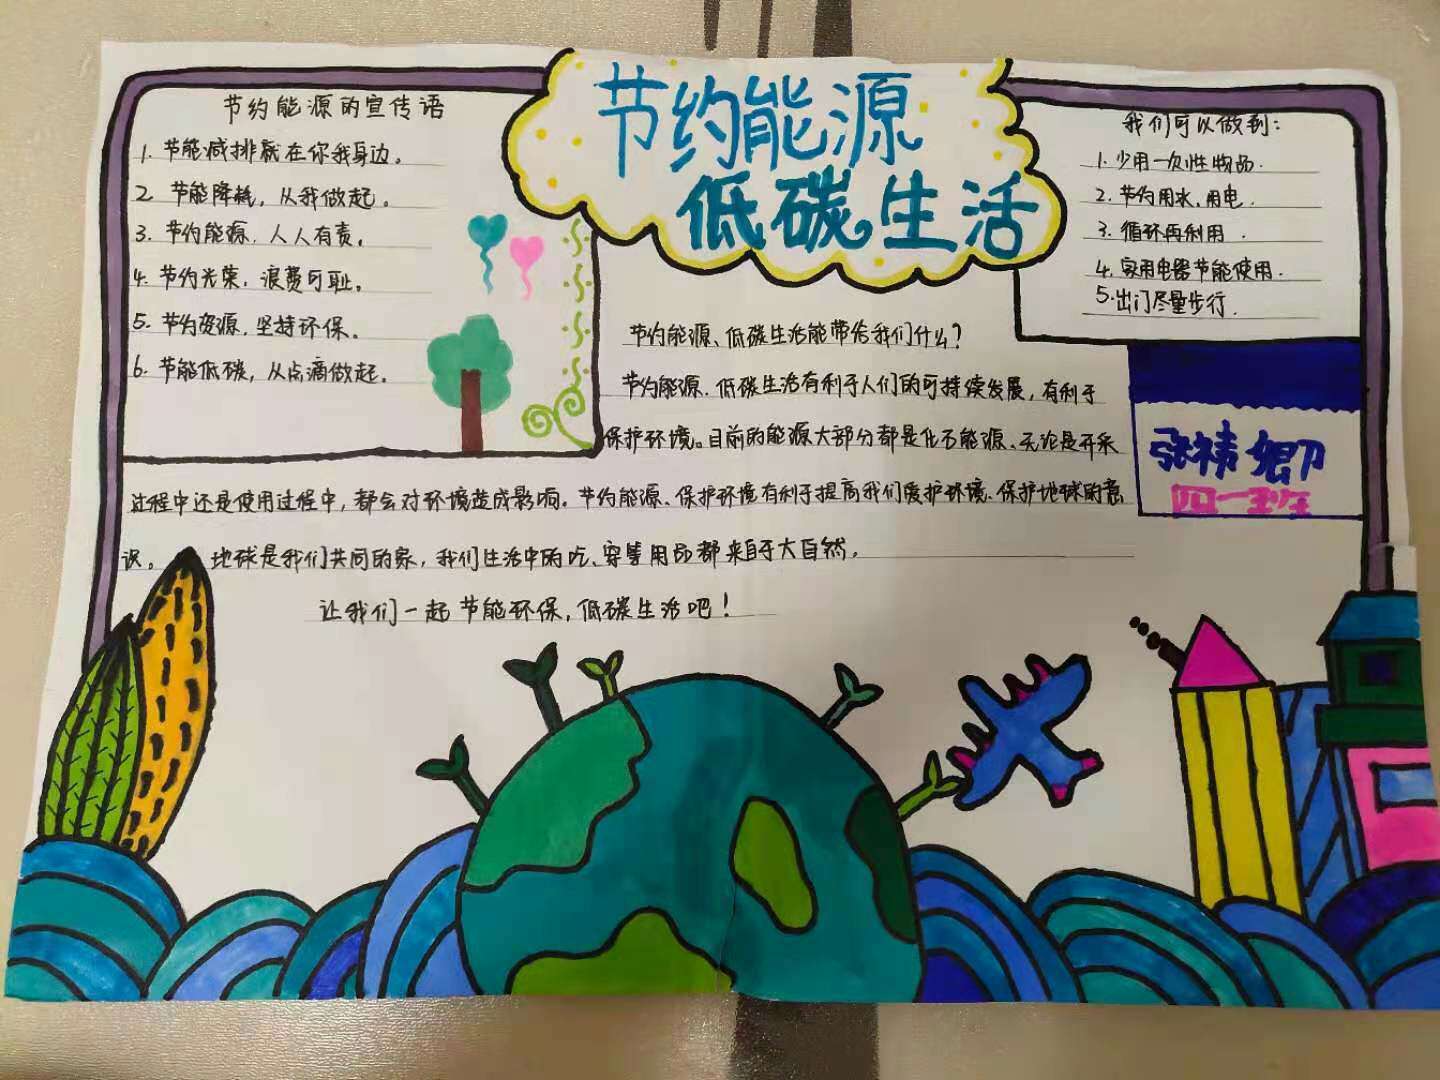 节约能源
低碳生活
节约能源的宣传语
1. 节能减排就在你我身边。
2. 节能降耗，从我做起。
3. 节约能源，人人有责。
4. 节约光荣，浪费可耻。
5. 节约资源，坚持环保。
6. 节能低碳，从点滴做起。
我们可以做到：
1. 少用一次性物品.
2. 节约用水，用电.
3. 循环再利用.
4. 家用电器节能使用.
5. 出门尽量步行.
节约能源、低碳生活能带给我们什么？
节约能源、低碳生活有利于人们的可持续发展，有利于
保护环境。目前的能源大部分都是化石能源、无论是开采
过程中还是使用过程中，都会对环境造成影响。节约能源、保护环境有利于提高我们爱护环境、保护地球的意
识。 地球是我们共同的家，我们生活中的吃、穿等用品都来自于大自然。
让我们一起节能环保，低碳生活吧！
张祎卿
四一班